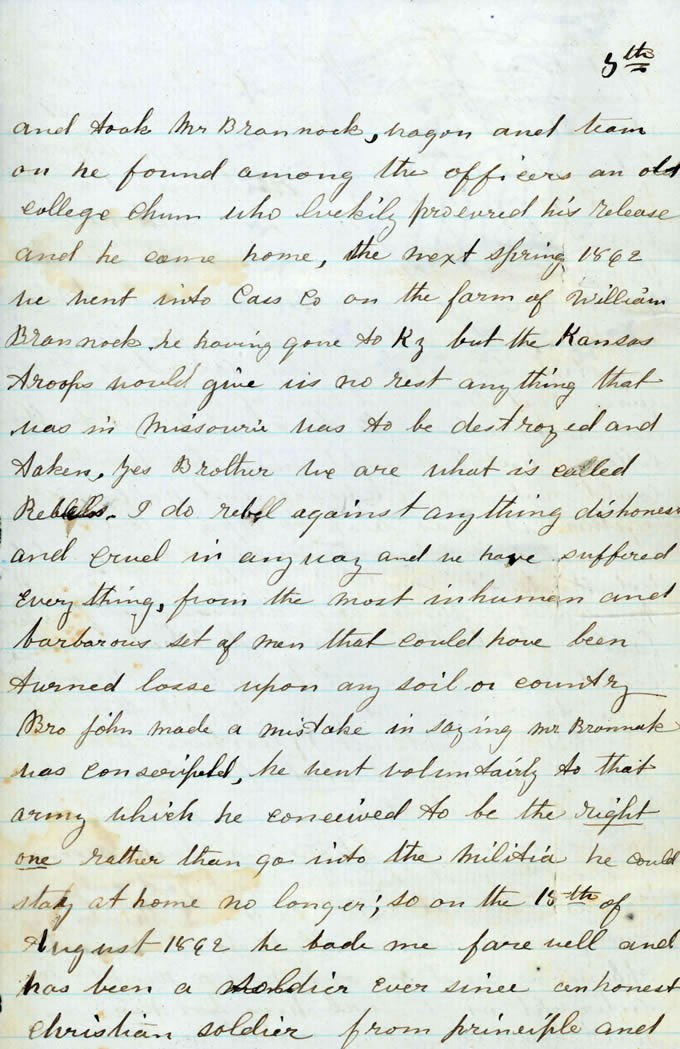 5th
and took Mr Brannock, wagon and team
on he found among the officers an old
college chum who luckily procured his release
and he came home, the next spring 1862
we went into Cass Co on the farm of William
Brannock he having gone to Ky but the Kansas
troops would give us no rest anything that
was in Missouri was to be destroyed and
taken, yes Brother we are what is called
Rebbels. I do rebel against anything dishonest
and cruel in anyway and we have suffered
every thing, from the most inhumen and
barbarous set of men that could have been
turned losse upon any soil or country
Bro John made a mistake in saying Mr Brannock
was conscripted, he went voluntairly to that
army which he conceived to be the right
one rather than go into the Militia he could
stay at home no longer; so on the 15th of
August 1862 he bade me farewell and
has been a soldier ever since an honest
christian soldier from principle and